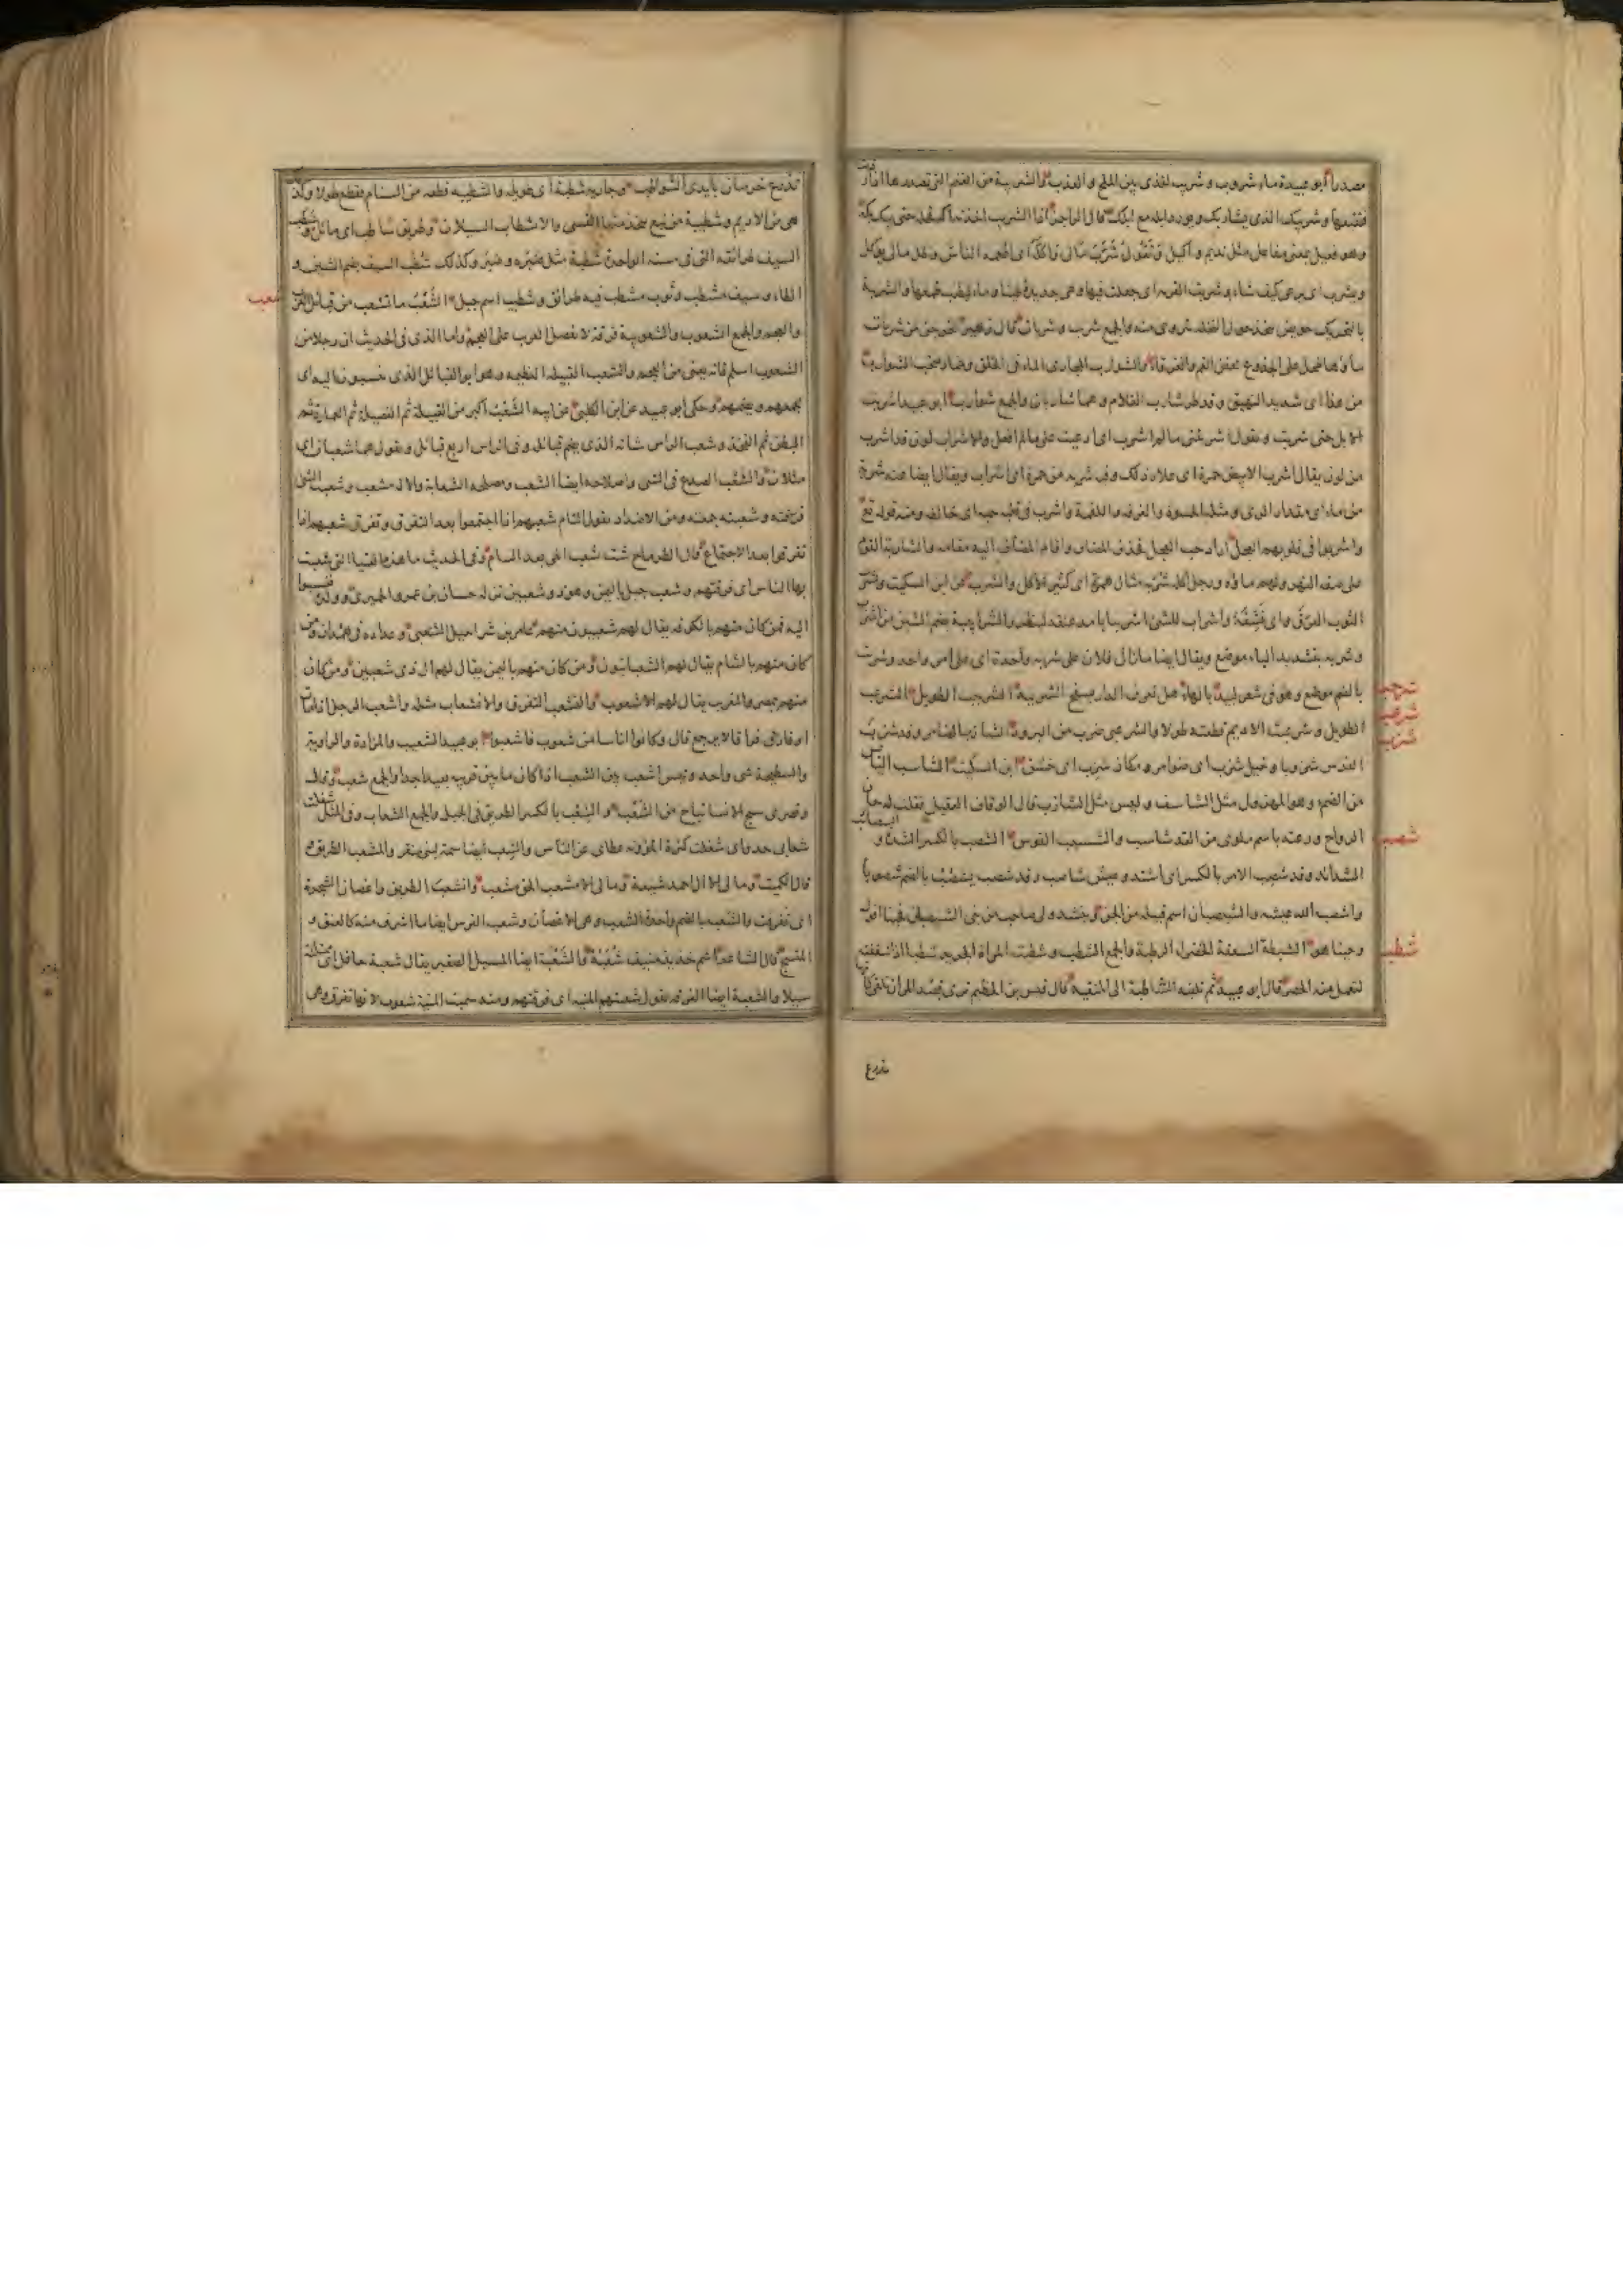 مصدرا ابو عبيدة ماء شروب وشريب للذى بين الملح والعذب والشربة من الغنم التى تصدرها اذا رويت
فتتبعها وشريبك الذى يشاربك ويورد ابله مع ابلك قال الراجز اذا الشريب اخذته اكه فخله حتى يبك بكه
وهو فعيل بمعنى مفاعل مثل نديم واكيل وتقول شرب مالى واكله اى اطعمه الناس وظل مالى يؤكل
ويشرب اى يرعى كيف شاء وشربت القربة اى جعلت فيها وهى جديدة طينا وماء ليطيب طعمها والشربة
بالتحريك حويض يتخذ حول النخلة تروى منه والجمع شرب وشربات قال زهير يخرجن من شربات
ماؤها طحل على الجذوع يخفن الغم والغرقا والشوارب مجارى الماء فى الحلق وحمار صخب الشوارب
من هذا اى شديد النهيق وقد طر شارب الغلام وهما شاربان والجمع شوارب ابو عبيد اشربت
الابل حتى شربت وتقول اشربتنى ما لم اشرب اى ادعيت على ما لم افعل والاشراب لون قد اشرب
من لون يقال اشرب الابيض حمرة اى علاه ذلك وفيه شربة من حمرة اى اشراب ويقال ايضا عنده شربة
من ماء اى مقدار الرى ومثله الحسوة والغرفة واللقمة واشرب فى قلبه حبه اى خالطه ومنه قوله تع
واشربوا فى قلوبهم العجل اراد حب العجل فحذف المضاف واقام المضاف اليه مقامه والشاربة القوم
على ضفة النهر ولهم ماؤه ورجل اكلة شربة مثال همزة اى كثير الاكل والشرب عن ابن السكيت وتشرب
الثوب العرق اى نشفه واشراب للشئ اشريبابا مد عنقه لينظر والشرابيبة بضم الشين من اشراب
وشربة بتشديد الباء موضع ويقال ايضا ما زال فلان على شربة واحدة اى على امر واحد وشربب
بالضم موضع وهو فى شعر لبيد بالهاء هل تعرف الدار بسفح الشرببة الشرجب الطويل الشرعب
الطويل وشرعبت الاديم قطعته طولا والشرعبى ضرب من البرود الشازب الضامر وقد شزب
الفرس شزوبا وخيل شزب اى ضوامر ومكان شزب اى خشن ابن السكيت الشاسب اليابس
من الضمر وهو المهزول مثل الشاسف وليس مثل الشازب قال الوقاف العقيلى فقلت له حان
الرواح ورعته باسمر ملوى من القد شاسب والشسيب القوس الشصب بالكسر الشدة و الشصائب
الشدائد وقد شصب الامر بالكسر اى اشتد وعيش شاصب وقد شصب يشصب بالضم شصوبا
واشصب الله عيشه والشيصبان اسم قبيلة من الجن وينشد ولى صاحب من بنى الشيصبان فحينا اقول
وحينا هو الشطبة السعفة الخضراء الرطبة والجمع الشطب وشطبت المراة الجريد شطبا اذا شققته
لتعمل منه الحصر قال ابو عبيد ثم تلقيه الشاطبة الى المنقية قال قيس بن الخطيم ترى قصد المران تلقى كانها
تذرع
شرجب
شرعب
شزب
شصب
شطب
تذرع خرصان بايدى الشواطب وجارية شطبة اى طويلة والشطيبة قطعة من السنام تقطع طولا وكذلك
هى من الاديم وشطبة من نبع يتخذ منها القسى والانشطاب السيلان وطريق شاطب اى مائل وشطب
السيف طرائقه التى فى متنه الواحدة شطبة مثل صبرة وصبر وكذلك شطب السيف بضم الشين و
الطاء وسيف مشطب وثوب مشطب فيه طرائق وشطيب اسم جبل الشعب ما تشعب من قبائل العرب
والعجم والجمع الشعوب والشعوبية فرقة لا تفضل العرب على العجم واما الذى فى الحديث ان رجلا من
الشعوب اسلم فانه يعنى من العجم والشعب القبيلة العظيمة وهو ابو القبائل الذى ينسبون اليه اى
يجمعهم ويضمهم وحكى ابو عبيد عن ابن الكلبى عن ابيه الشعب اكبر من القبيلة ثم الفصيلة ثم العمارة ثم
البطن ثم الفخذ وشعب الراس شانه الذى يضم قبائله وفى الراس اربع قبائل وتقول هما شعبان اى
مثلان والشعب الصدع فى الشئ واصلاحه ايضا الشعب ومصلحه الشعاب والالة مشعب وشعبت الشئ
فرقته وشعبته جمعته وهو من الاضداد تقول التام شعبهم اذا اجتمعوا بعد التفرق وتفرق شعبهم اذا
تفرقوا بعد الاجتماع قال الطرماح شت شعب الحى بعد التئام وفى الحديث ما هذه الفتيا التى شعبت
بها الناس اى فرقتهم وشعب جبل باليمن وهو ذو شعبين نزله حسان بن عمرو الحميرى وولده فنسبوا
اليه فمن كان منهم بالكوفة يقال لهم شعبيون منهم عامر بن شراحيل الشعبى وعداده فى همدان ومن
كان منهم بالشام يقال لهم الشعبانيون ومن كان منهم باليمن يقال لهم ال ذى شعبين ومن كان
منهم بمصر والمغرب يقال لهم الاشعوب والتشعب التفرق والانشعاب مثله واشعب الرجل اذا مات
او فارق فراقا لا يرجع قال وكانوا اناسا من شعوب فاشعبوا ابو عبيد الشعيب والمزادة والراوية
والسطيحة شئ واحد وتيس اشعب بين الشعب اذا كان ما بين قرنيه بعيدا جدا والجمع شعب وقال
وقصرى شنج الانساء نباح من الشعب والشعب بالكسر الطريق فى الجبل والجمع الشعاب وفى المثل شغلت
شعابى جدواى شغلت كثرة المؤونة عطاى عن الناس والشعب ايضا سمة لبنى منقر والمشعب الطريق
قال الكميت وما لى الا ال احمد شيعة وما لى الا مشعب الحق مشعب وانشعبت الطريق واغصان الشجرة
اى تفرقت والشعبة بالضم واحدة الشعب وهى الاغصان وشعب الفرس ايضا ما اشرف منه كالعنق و
المنسج قال الشاعر اشم خنذيذ منيف شعبه والشعبة ايضا المسيل الصغير يقال شعبة حافل اى ممتلئة
سيلا والشعبة ايضا الفرقة تقول شعبتهم المنية اى فرقتهم ومنه سميت المنية شعوب لانها تفرق وهى
شعب